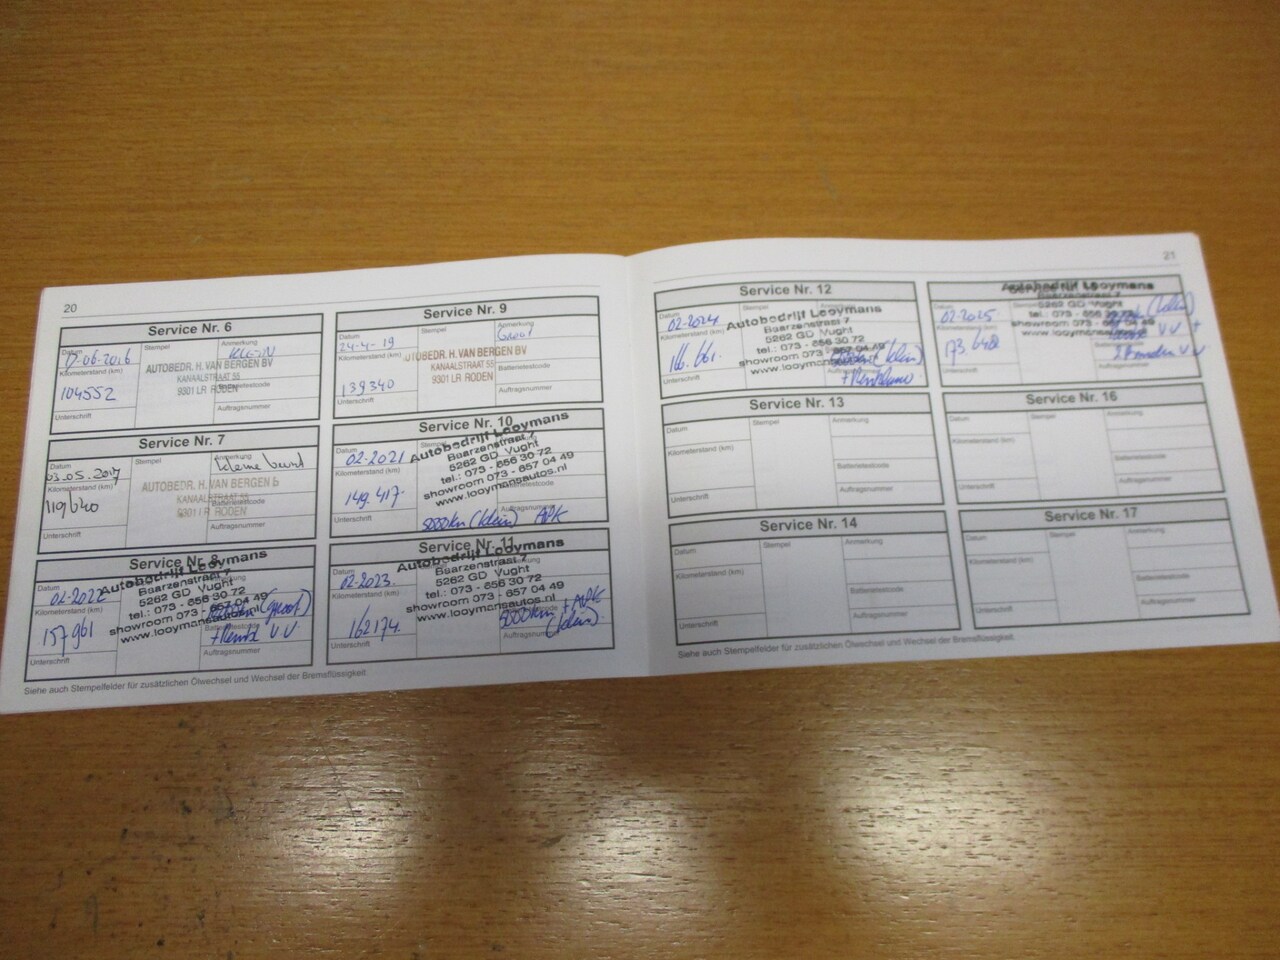 20
Service Nr. 6
Datum
17-06-2016
Kilometerstand (km)
104552
Unterschrift
Stempel
AUTOBEDR. H. VAN BERGEN BV
KANAALSTRAAT 55
9301 LR RODEN
Anmerkung
Klein
Auftragsnummer
Service Nr. 7
Datum
03.05.2017
Kilometerstand (km)
119640
Unterschrift
Stempel
AUTOBEDR. H. VAN BERGEN
KANAALSTRAAT 55
9301 LR RODEN
Anmerkung
kleine beurt
Batterietestcode
Auftragsnummer
Service Nr. 8
Datum
02-2022
Kilometerstand (km)
157961
Unterschrift
Autobedrijf Looymans
Baarzenstraat 7
5262 GD Vught
tel.: 073 - 656 30 72
showroom 073 - 657 04 49
www.looymansautos.nl
(groot)
V.V
Auftragsnummer
Service Nr. 9
Datum
24-4-19
Kilometerstand (km)
139340
Unterschrift
Stempel
AUTOBEDR. H. VAN BERGEN BV
KANAALSTRAAT 55
9301 LR RODEN
Anmerkung
Groot
Batterietestcode
Auftragsnummer
Service Nr. 10
Datum
02-2021
Kilometerstand (km)
149.417.
Unterschrift
Autobedrijf Looymans
Baarzenstraat 7
5262 GD Vught
tel.: 073 - 656 30 72
showroom 073 - 657 04 49
www.looymansautos.nl
(klein) APK
Service Nr. 11
Datum
02-2023.
Kilometerstand (km)
162174.
Unterschrift
Autobedrijf Looymans
Baarzenstraat 7
5262 GD Vught
tel.: 073 - 656 30 72
showroom 073 - 657 04 49
www.looymansautos.nl
+ APK
(klein).
Auftragsnummer
Siehe auch Stempelfelder für zusätzlichen Ölwechsel und Wechsel der Bremsflüssigkeit
21
Service Nr. 12
Datum
02-2024
Kilometerstand (km)
166.661.
Unterschrift
Stempel
Autobedrijf Looymans
Baarzenstraat 7
5262 GD Vught
tel.: 073 - 656 30 72
showroom 073 - 657 04 49
www.looymansautos.nl
(klein)
Service Nr. 13
Datum
Kilometerstand (km)
Unterschrift
Stempel
Anmerkung
Batterietestcode
Auftragsnummer
Service Nr. 14
Datum
Kilometerstand (km)
Unterschrift
Stempel
Anmerkung
Batterietestcode
Auftragsnummer
Datum
02-2025
Kilometerstand (km)
173.648
Unterschrift
Autobedrijf Looymans
Baarzenstraat 7
5262 GD Vught
tel.: 073 - 656 30 72
showroom 073 - 657 04 49
www.looymansautos.nl
(klein)
V.V +
V.V
Auftragsnummer
Service Nr. 16
Datum
Kilometerstand (km)
Unterschrift
Stempel
Anmerkung
Batterietestcode
Auftragsnummer
Service Nr. 17
Datum
Kilometerstand (km)
Unterschrift
Stempel
Anmerkung
Batterietestcode
Auftragsnummer
Siehe auch Stempelfelder für zusätzlichen Ölwechsel und Wechsel der Bremsflüssigkeit